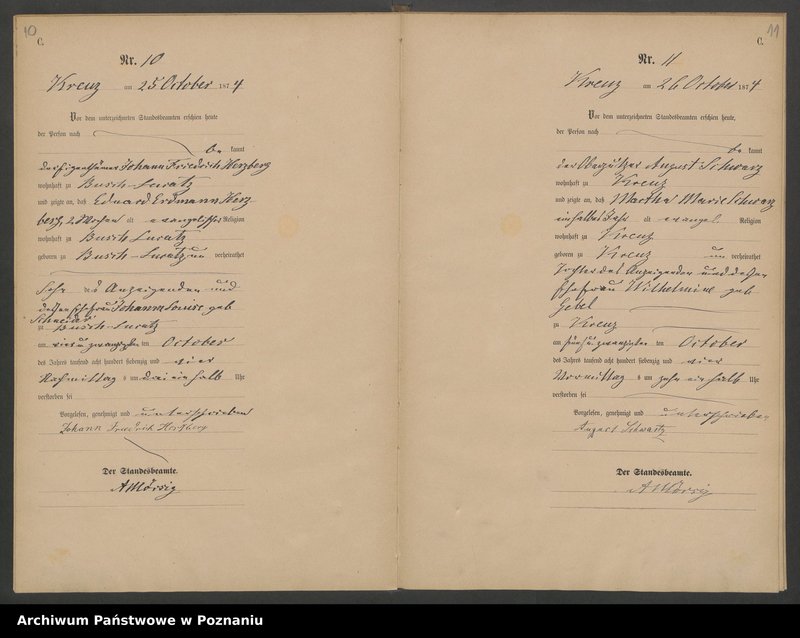 10
C.
Nr. 10
Kreuz am 25 October 1874
Vor dem unterzeichneten Standesbeamten erschien heute
der Person nach
be kannt
der Eigenthümer Johann Friedrich Herzberg
wohnhaft zu Busch-Lucatz
und zeigte an, daß Eduard Erdmann Herz
berg, 2 Wochen alt evangelischer Religion
wohnhaft zu Busch Lucatz
geboren zu Busch-Lucatz un verheirathet
Sohn des Anzeigenden und
dessen Ehefrau Johanne Louise geb
Schneider
zu Busch-Lucatz
am vier u zwanzigsten ten October
des Jahres tausend acht hundert siebenzig und vier
Nachmittag s um drei ein halb Uhr
verstorben sei
Vorgelesen, genehmigt und unterschrieben
Johann Friedrich Herzberg
Der Standesbeamte.
11
C.
Nr. 11
Kreuz am 26 October 1874
Vor dem unterzeichneten Standesbeamten erschien heute,
der Person nach
be kannt
der August Schwarz
wohnhaft zu Kreuz
und zeigte an, daß Martha Marie Schwarz
ein halbes Jahr alt evangel. Religion
wohnhaft zu Kreuz
geboren zu Kreuz un verheirathet
Tochter des Anzeigenden und dessen
Ehefrau Wilhelmine geb
zu Kreuz
am fünf u zwanzigsten ten October
des Jahres tausend acht hundert siebenzig und vier
Vormittag s um zehn ein halb Uhr
verstorben sei
Vorgelesen, genehmigt und unterschrieben
August Schwartz
Der Standesbeamte.
Archiwum Państwowe w Poznaniu